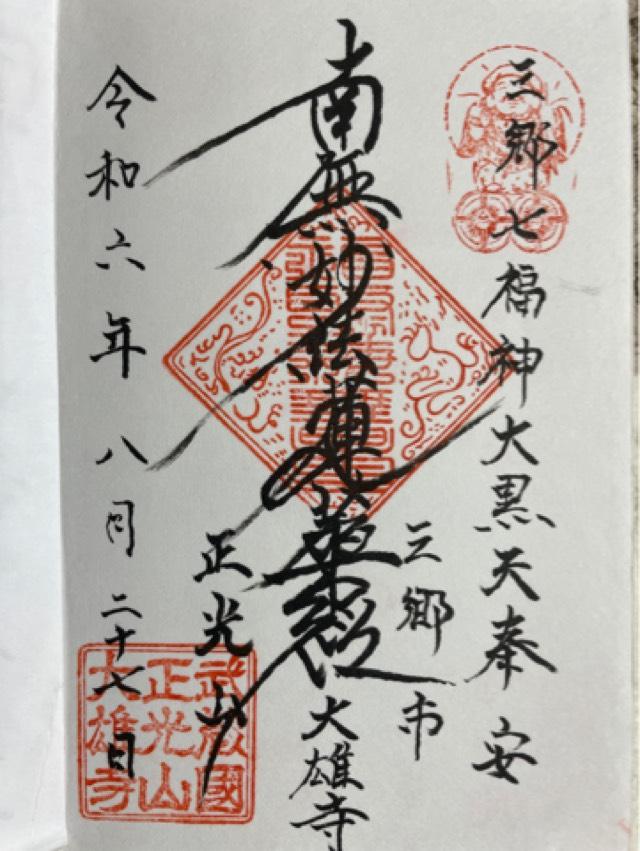 三郷七福神大黒天奉安
南無妙法蓮華経
三郷市
大雄寺
正光山
令和六年八月二十七日
武蔵國
正光山
大雄寺